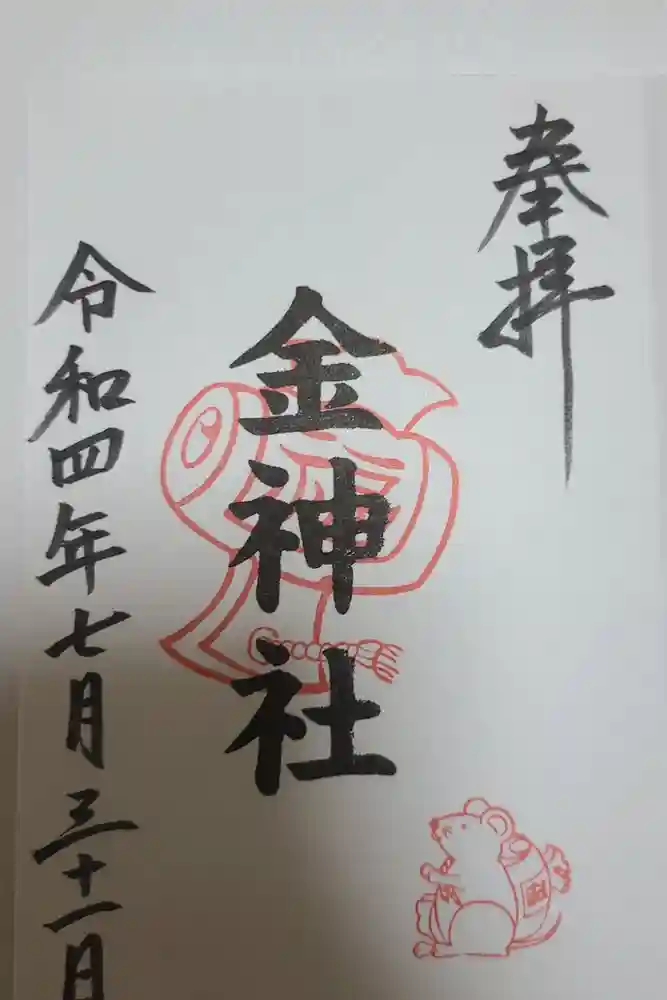 奉拝
金神社
令和四年七月三十一日